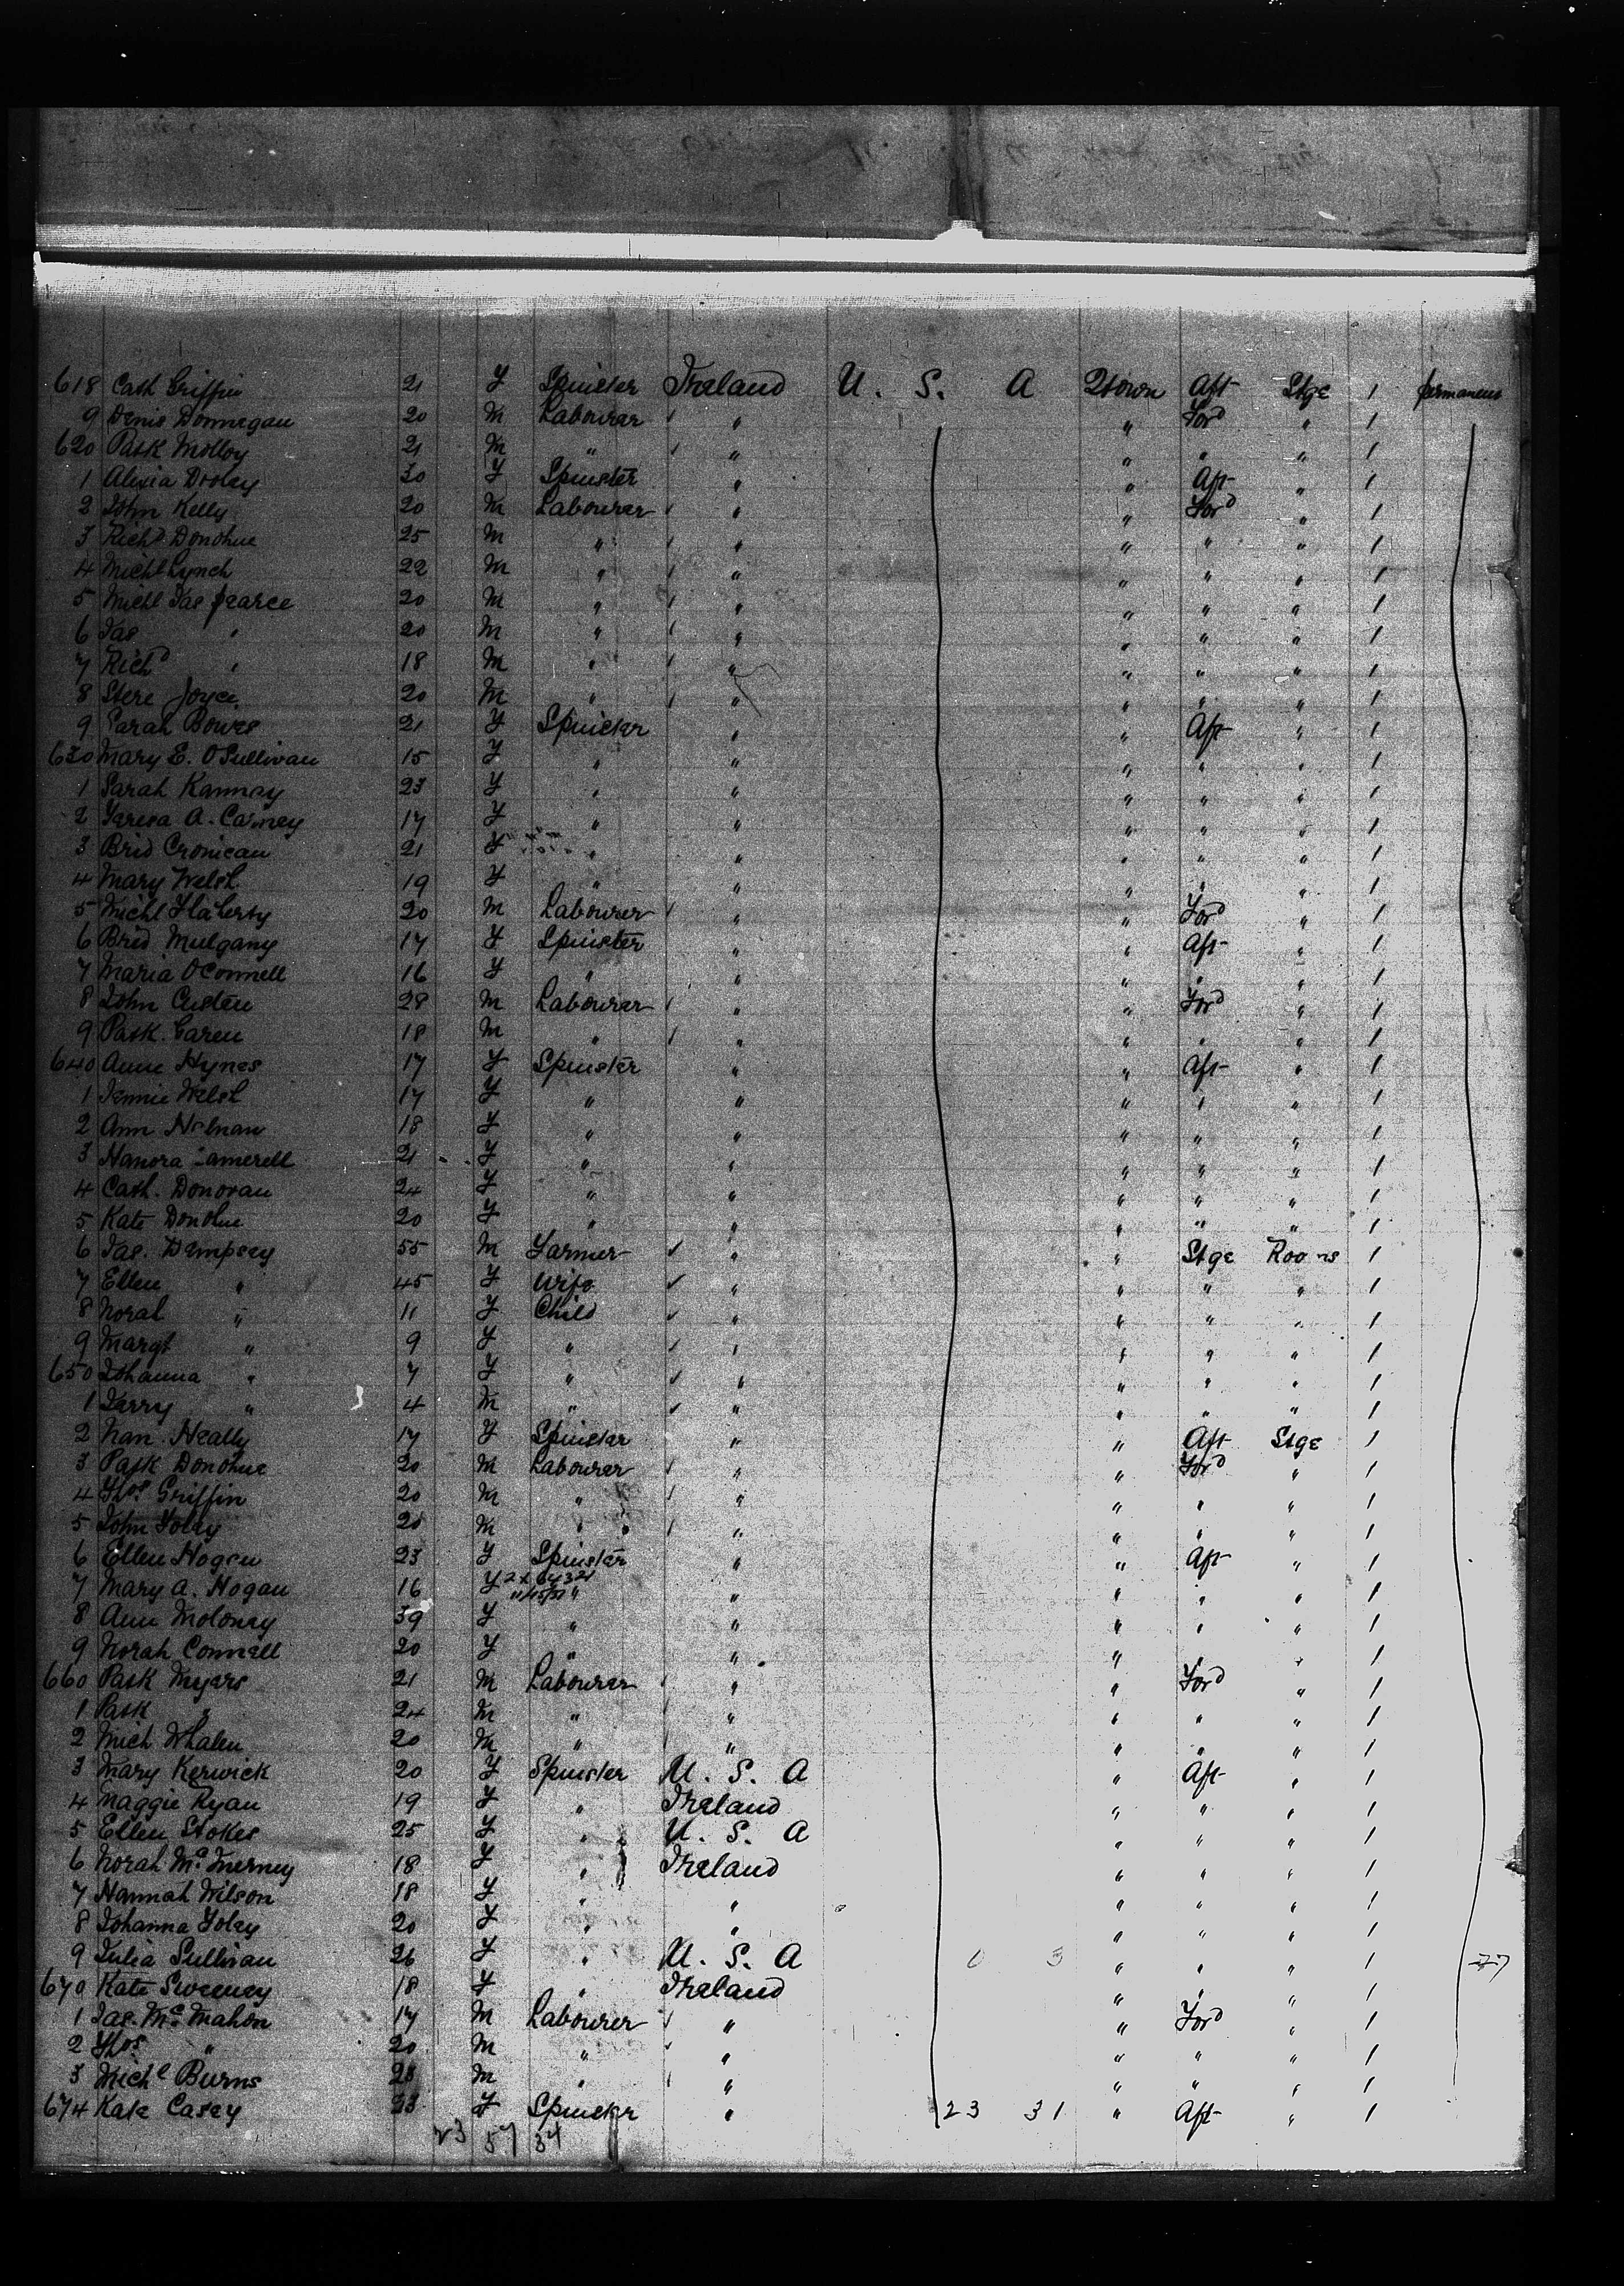 618 Cath Griffin 21 F Spinster Ireland U. S. A Qtown Aft Stge 1 permanent
9 Denis Donnegan 20 M Labourer / " " Ford " 1
620 Patk Molloy 21 M " / " " " " 1
1 Alicia Dooley 30 F Spinster " " Aft " 1
2 John Kelly 20 M Labourer / " " Ford " 1
3 Richd Donohue 25 M " / " " " " 1
4 Michl Lynch 22 M " / " " " " 1
5 Michl Jas Pearce 20 M " / " " " " 1
6 Jas " 20 M " / " " " " 1
7 Richd " 18 M " / " " " " 1
8 Steve Joyce 20 M " / " " " " 1
9 Sarah Bowes 21 F Spinster " " Aft " 1
630 Mary E. O'Sullivan 15 F " " " " " 1
1 Sarah Kannay 23 F " " " " " 1
2 Teresa A. Carney 17 F " " " " " 1
3 Brid Cronican 21 F " " " " " 1
4 Mary Welsh 19 F " " " " " 1
5 Michl Flaherty 20 M Labourer / " " Ford " 1
6 Brid Mulgany 17 F Spinster " " Aft " 1
7 Maria O'Connell 16 F " " " " " 1
8 John Custen 28 M Labourer / " " Ford " 1
9 Patk. Garen 18 M " / " " " " 1
640 Anne Hynes 17 F Spinster " " Aft " 1
1 Jennie Welsh 17 F " " " " " 1
2 Ann 18 F " " " " " 1
3 Hanora 21 F " " " " " 1
4 Cath. Donovan 24 F " " " " " 1
5 Kate Donohue 20 F " " " " " 1
6 Jas. Dempsey 55 M Farmer ✓ " " Stge Rooms 1
7 Ellen " 45 F Wife ✓ " " " " 1
8 Norah " 11 F Child ✓ " " " " 1
9 Margt " 9 F " / " " " " 1
650 Johanna " 7 F " ✓ " " " " 1
1 Jerry " 4 M " ✓ " " " " 1
2 Nan Heally 17 F Spinster " " Aft Stge 1
3 Patk Donohue 20 M Labourer / " " Ford " 1
4 Thos Griffin 20 M " / " " " " 1
5 John Foley 20 M " / " " " " 1
6 Ellen Hogan 23 F Spinster " " Aft " 1
7 Mary A. Hogan 16 F " " " " " 1
8 Ann Moloney 39 F " " " " " 1
9 Norah Connell 20 F " " " " " 1
660 Patk Myers 21 M Labourer / " " Ford " 1
1 Patk " 24 M " / " " " " 1
2 Mich Whalen 20 M " / " " " " 1
3 Mary Kerwick 20 F Spinster U. S. A " Aft " 1
4 Maggie Ryan 19 F " Ireland " " " 1
5 Ellen Stokes 25 F " U. S. A " " " 1
6 Norah McInerney 18 F " Ireland " " " 1
7 Hannah Wilson 18 F " " " " " 1
8 Johanna Foley 20 F " " " " " 1
9 Julia Sullivan 26 F " U. S. A 0 3 " " " 1
670 Kate Sweeney 18 F " Ireland " " " 1
1 Jas. McMahon 17 M Labourer / " " Ford " 1
2 Thos " 20 M " / " " " " 1
3 Michl Burns 28 M " / " " " " 1
674 Kate Casey 23 F Spinster " 23 31 " Aft " 1
23 57 34